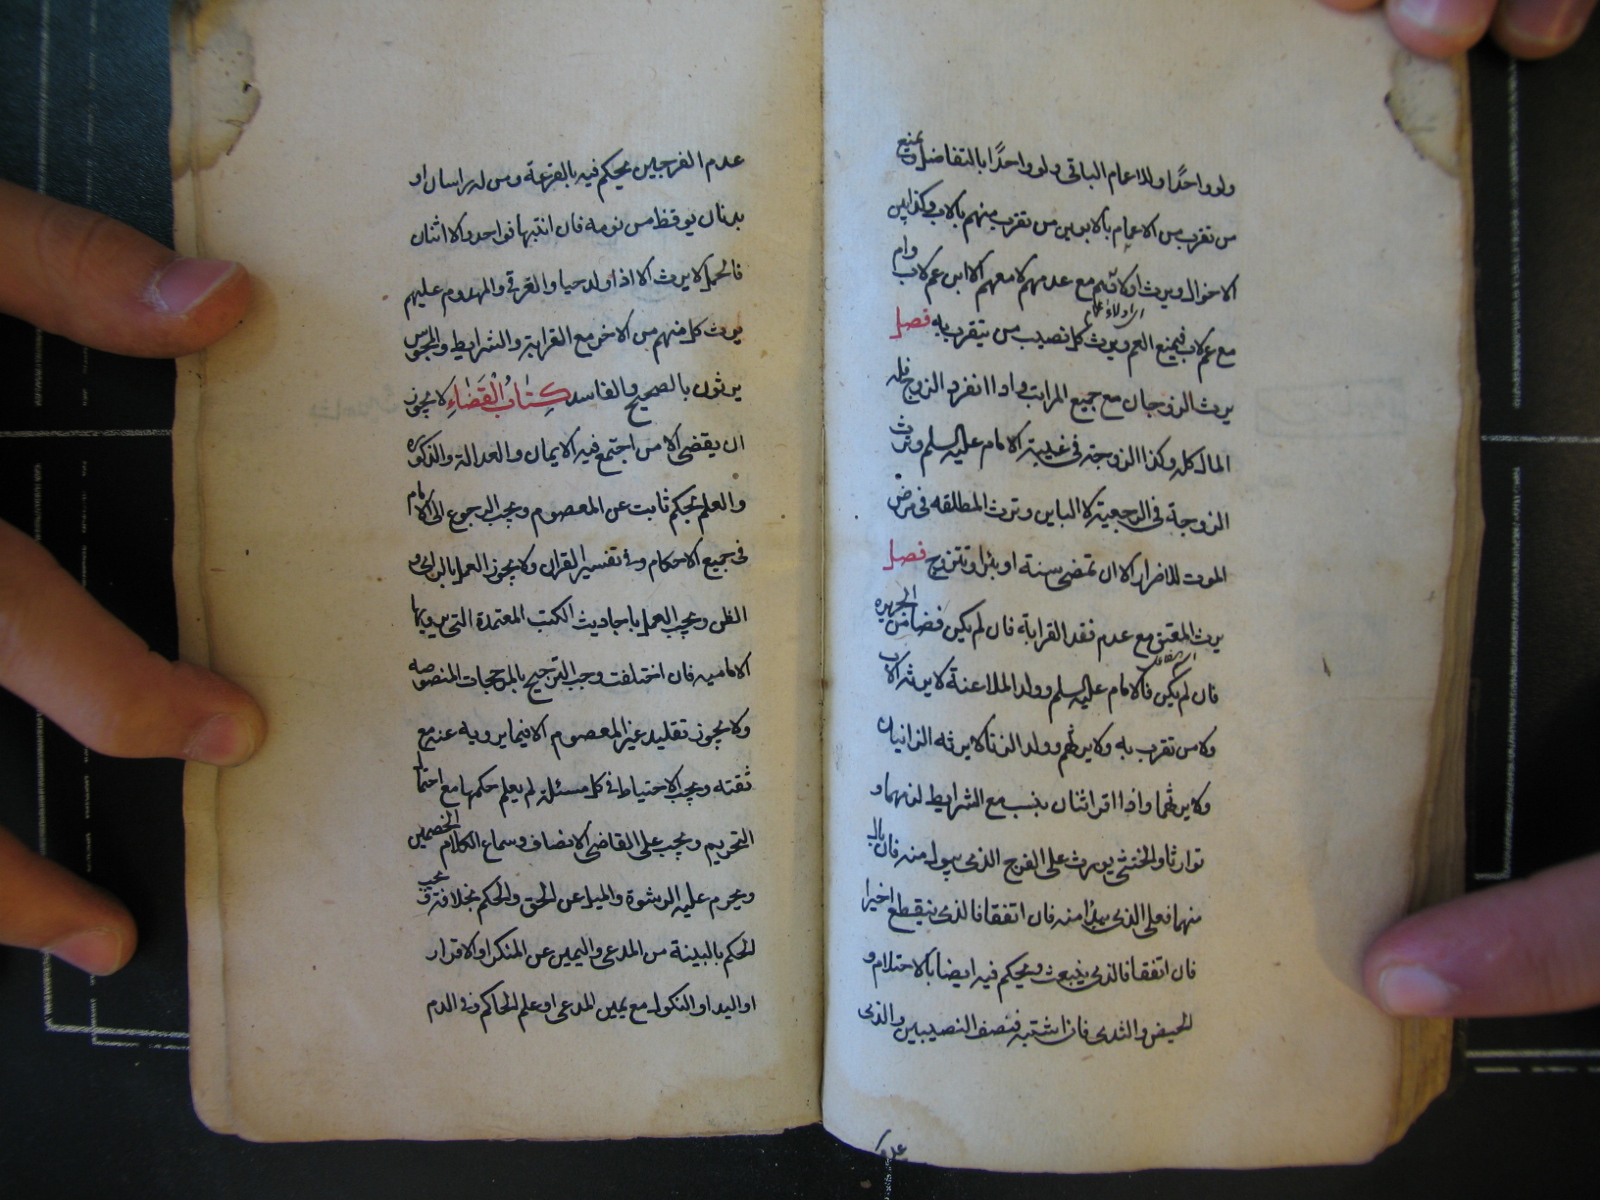 ولو واحدًا ولاولاد الاعمام الباقي ولو واحدًا بالتفاضل ويمنع
من تقرب من الاعمام بالابوين من تقرب منهم بالاب وكذا بين
الاخوال ويرث اولادهم مع عدمهم لا معهم الا ابن عم لاب وام
مع عم لاب فيمنع العم ويرث كل نصيب من يتقرب به فصل
اى اولاد الاعمام
يرث الزوجان مع جميع المراتب واذا انفرد الزوج فله
المال كله وكذا الزوجة في غيبة الامام عليه السلم وترث
الزوجة في الرجعية لا الباين وترث المطلقه في مرض
الموت للاضرار الا ان تمضى سنة او يبرا او تتزوج فصل
يرث المعتق مع عدم فقد القرابة فان لم يكن فضامن الجريره
فان لم يكن فالامام عليه السلم وولد الملاعنة لا يرثه الاب
ولا من تقرب به ولا يرثهم وولد الزنا لا يرثه الزانيان
ولا يرثهما واذا اقر اثنان بنسب مع الشرايط لزمهما و
توارثا والخنثى يورث على الفرج الذى يبول منه فان بال
منهما فعلى الذى يبدأ منه فان اتفقا فالذى ينقطع اخيرا
فان اتفقا فالذى ينبعث ويحكم فيه ايضا بالاحتلام و
الحيض والثدى فان اشتبه فنصف النصيبين والذى
عدم
عدم الفرجين يحكم فيه بالقرعة ومن له راسان او
بدنان يوقظ من نومه فان انتبها فواحد والا اثنان
فالحمل لا يرث الا اذا ولد حيا والغرقى والمهدوم عليهم
يرث كل منهم من الاخر مع القرابة والشرايط والمجوس
يرثون بالصحيح والفاسد كتاب القضاء لا يجوز
ان يقضى الا من اجتمع فيه الايمان والعدالة والذكوره
والعلم بحكم ثابت عن المعصوم ويجب الرجوع الى الامام
فى جميع الاحكام وفى تفسير القران ولا يجوز العمل بالراى و
الظن ويجب العمل باحاديث الكتب المعتمدة التى يرويها
الاماميه فان اختلفت وجب الترجيح بالمرجحات المنصوصه
ولا يجوز تقليد غير المعصوم الا فيما يرويه عنه مع
ثقته ويجب الاحتياط فى كل مسئلة لم يعلم حكمها مع احتمال
التحريم ويجب على القاضى الانصاف وسماع الكلام الخصمين
ويحرم عليه الرشوة والميل عن الحق والحكم بخلافه ويجب
الحكم بالبينة من المدعى واليمين عن المنكر او الاقرار
او اليد او النكول مع يمين المدعى او علم الحاكم وفى الدم